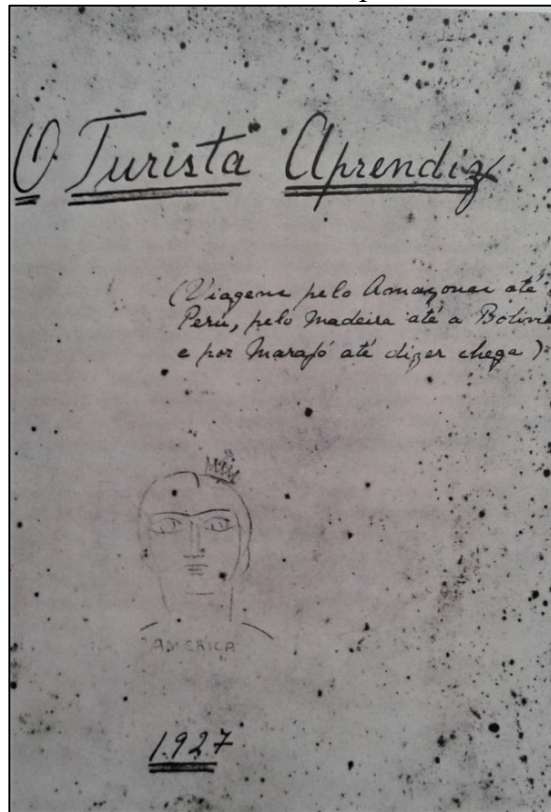 O Turista Aprendiz
(Viagens pelo Amazonas até
Perú, pelo Madeira até a Bolivia
e por Marajó até dizer chega)
AMERICA
1.927